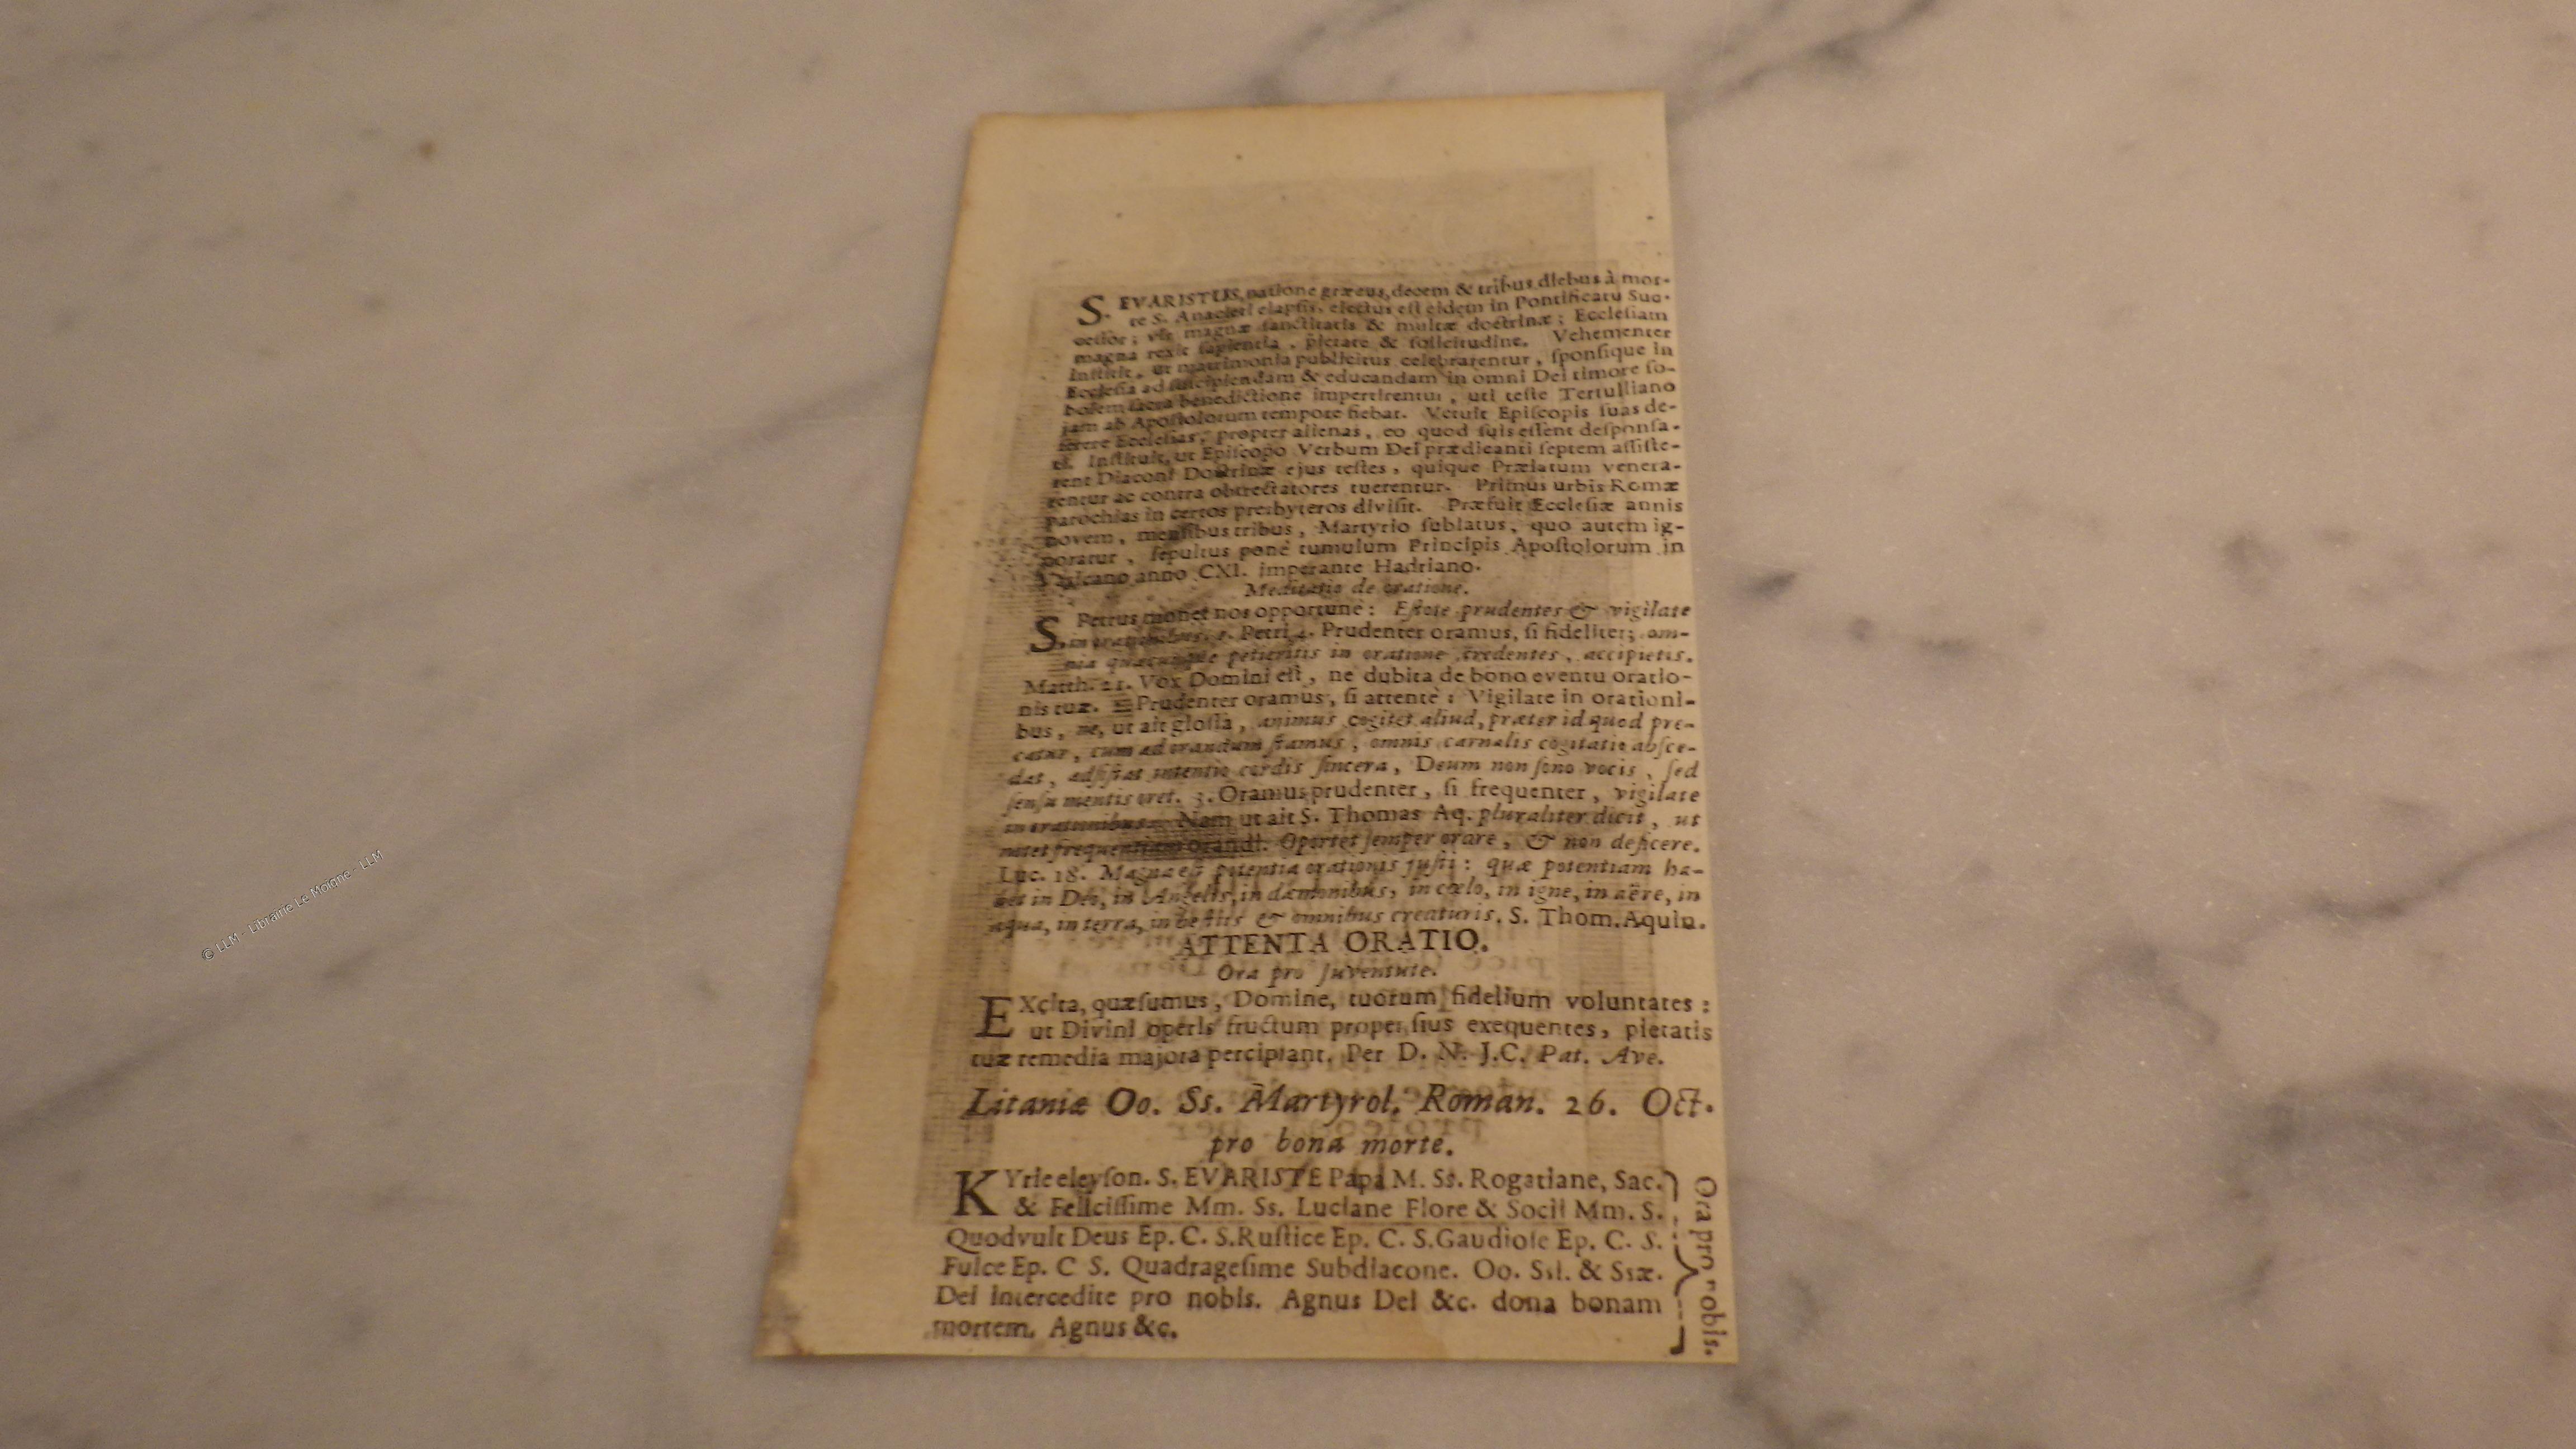 S. EVARISTUS, natione græcus, decem & tribus diebus à mor-
te S. Anacleti elapsis, electus est eidem in Pontificatu Suc-
cessor; vir magnæ sanctitatis & multæ doctrinæ; Ecclesiam
magna rexit sapientia, pietate & sollicitudine. Vehementer
Institit, ut matrimonia publicitus celebrarentur, sponsique in
Ecclesia ad suscipiendam & educandam in omni Dei timore so-
bolem sacra benedictione impertirentur, uti teste Tertulliano
jam ab Apostolorum tempore fiebat. Vetuit Episcopis suas de-
serere Ecclesias, propter alienas, eo quod suis essent desponsa-
ti. Instituit, ut Episcopo Verbum Dei prædicanti septem assiste-
rent Diaconi Doctrinæ ejus testes, quique Prælatum venera-
rentur ac contra obtrectatores tuerentur. Primus urbis Romæ
parochias in certos presbyteros divisit. Præfuit Ecclesiæ annis
novem, mensibus tribus, Martyrio sublatus, quo autem ig-
noratur, sepultus ponè tumulum Principis Apostolorum in
Vaticano anno CXI. imperante Hadriano.
Meditatio de oratione.
S. Petrus monet nos opportunè: Estote prudentes & vigilate
in orationibus. 1. Petri 4. Prudenter oramus, si fideliter; om-
nia quæcunque petieritis in oratione credentes, accipietis.
Matth. 21. Vox Domini est, ne dubita de bono eventu oratio-
nis tuæ. Prudenter oramus, si attentè: Vigilate in orationi-
bus, ne, ut ait glossa, animus cogitet aliud, præter id quod pre-
catur, cum ad orandum stamus, omnis carnalis cogitatio absce-
dat, adsistat intentio cordis sincera, Deum non sono vocis, sed
sensu mentis oret. 3. Oramus prudenter, si frequenter, vigilate
in orationibus. Nam ut ait S. Thomas Aq. pluraliter dicit, ut
notet frequentiam orandi. Oportet semper orare, & non deficere.
Luc. 18. Magna est potentia orationis justi: quæ potentiam ha-
bet in Deo, in Angelis, in dæmonibus, in cœlo, in igne, in aëre, in
aqua, in terra, in bestiis & omnibus creaturis. S. Thom. Aquin.
ATTENTA ORATIO.
Ora pro Juventute.
EXcita, quæsumus, Domine, tuorum fidelium voluntates:
ut Divini operis fructum propensius exequentes, pietatis
tuæ remedia majora percipiant. Per D. N. J.C. Pat. Ave.
Litaniæ Oo. Ss. Martyrol. Roman. 26. Oct.
pro bona morte.
KYrie eleyson. S. EVARISTE Papa M. Ss. Rogatiane, Sac.
& Felicissime Mm. Ss. Luciane Flore & Socii Mm. S.
Quodvult Deus Ep. C. S. Rustice Ep. C. S. Gaudiose Ep. C. S.
Fulce Ep. C S. Quadragesime Subdiacone. Oo. Sti. & Stæ.
Dei intercedite pro nobis. Agnus Dei &c. dona bonam
mortem. Agnus &c.
Ora pro nobis.
© LLM - Librairie Le Moigne - LLM